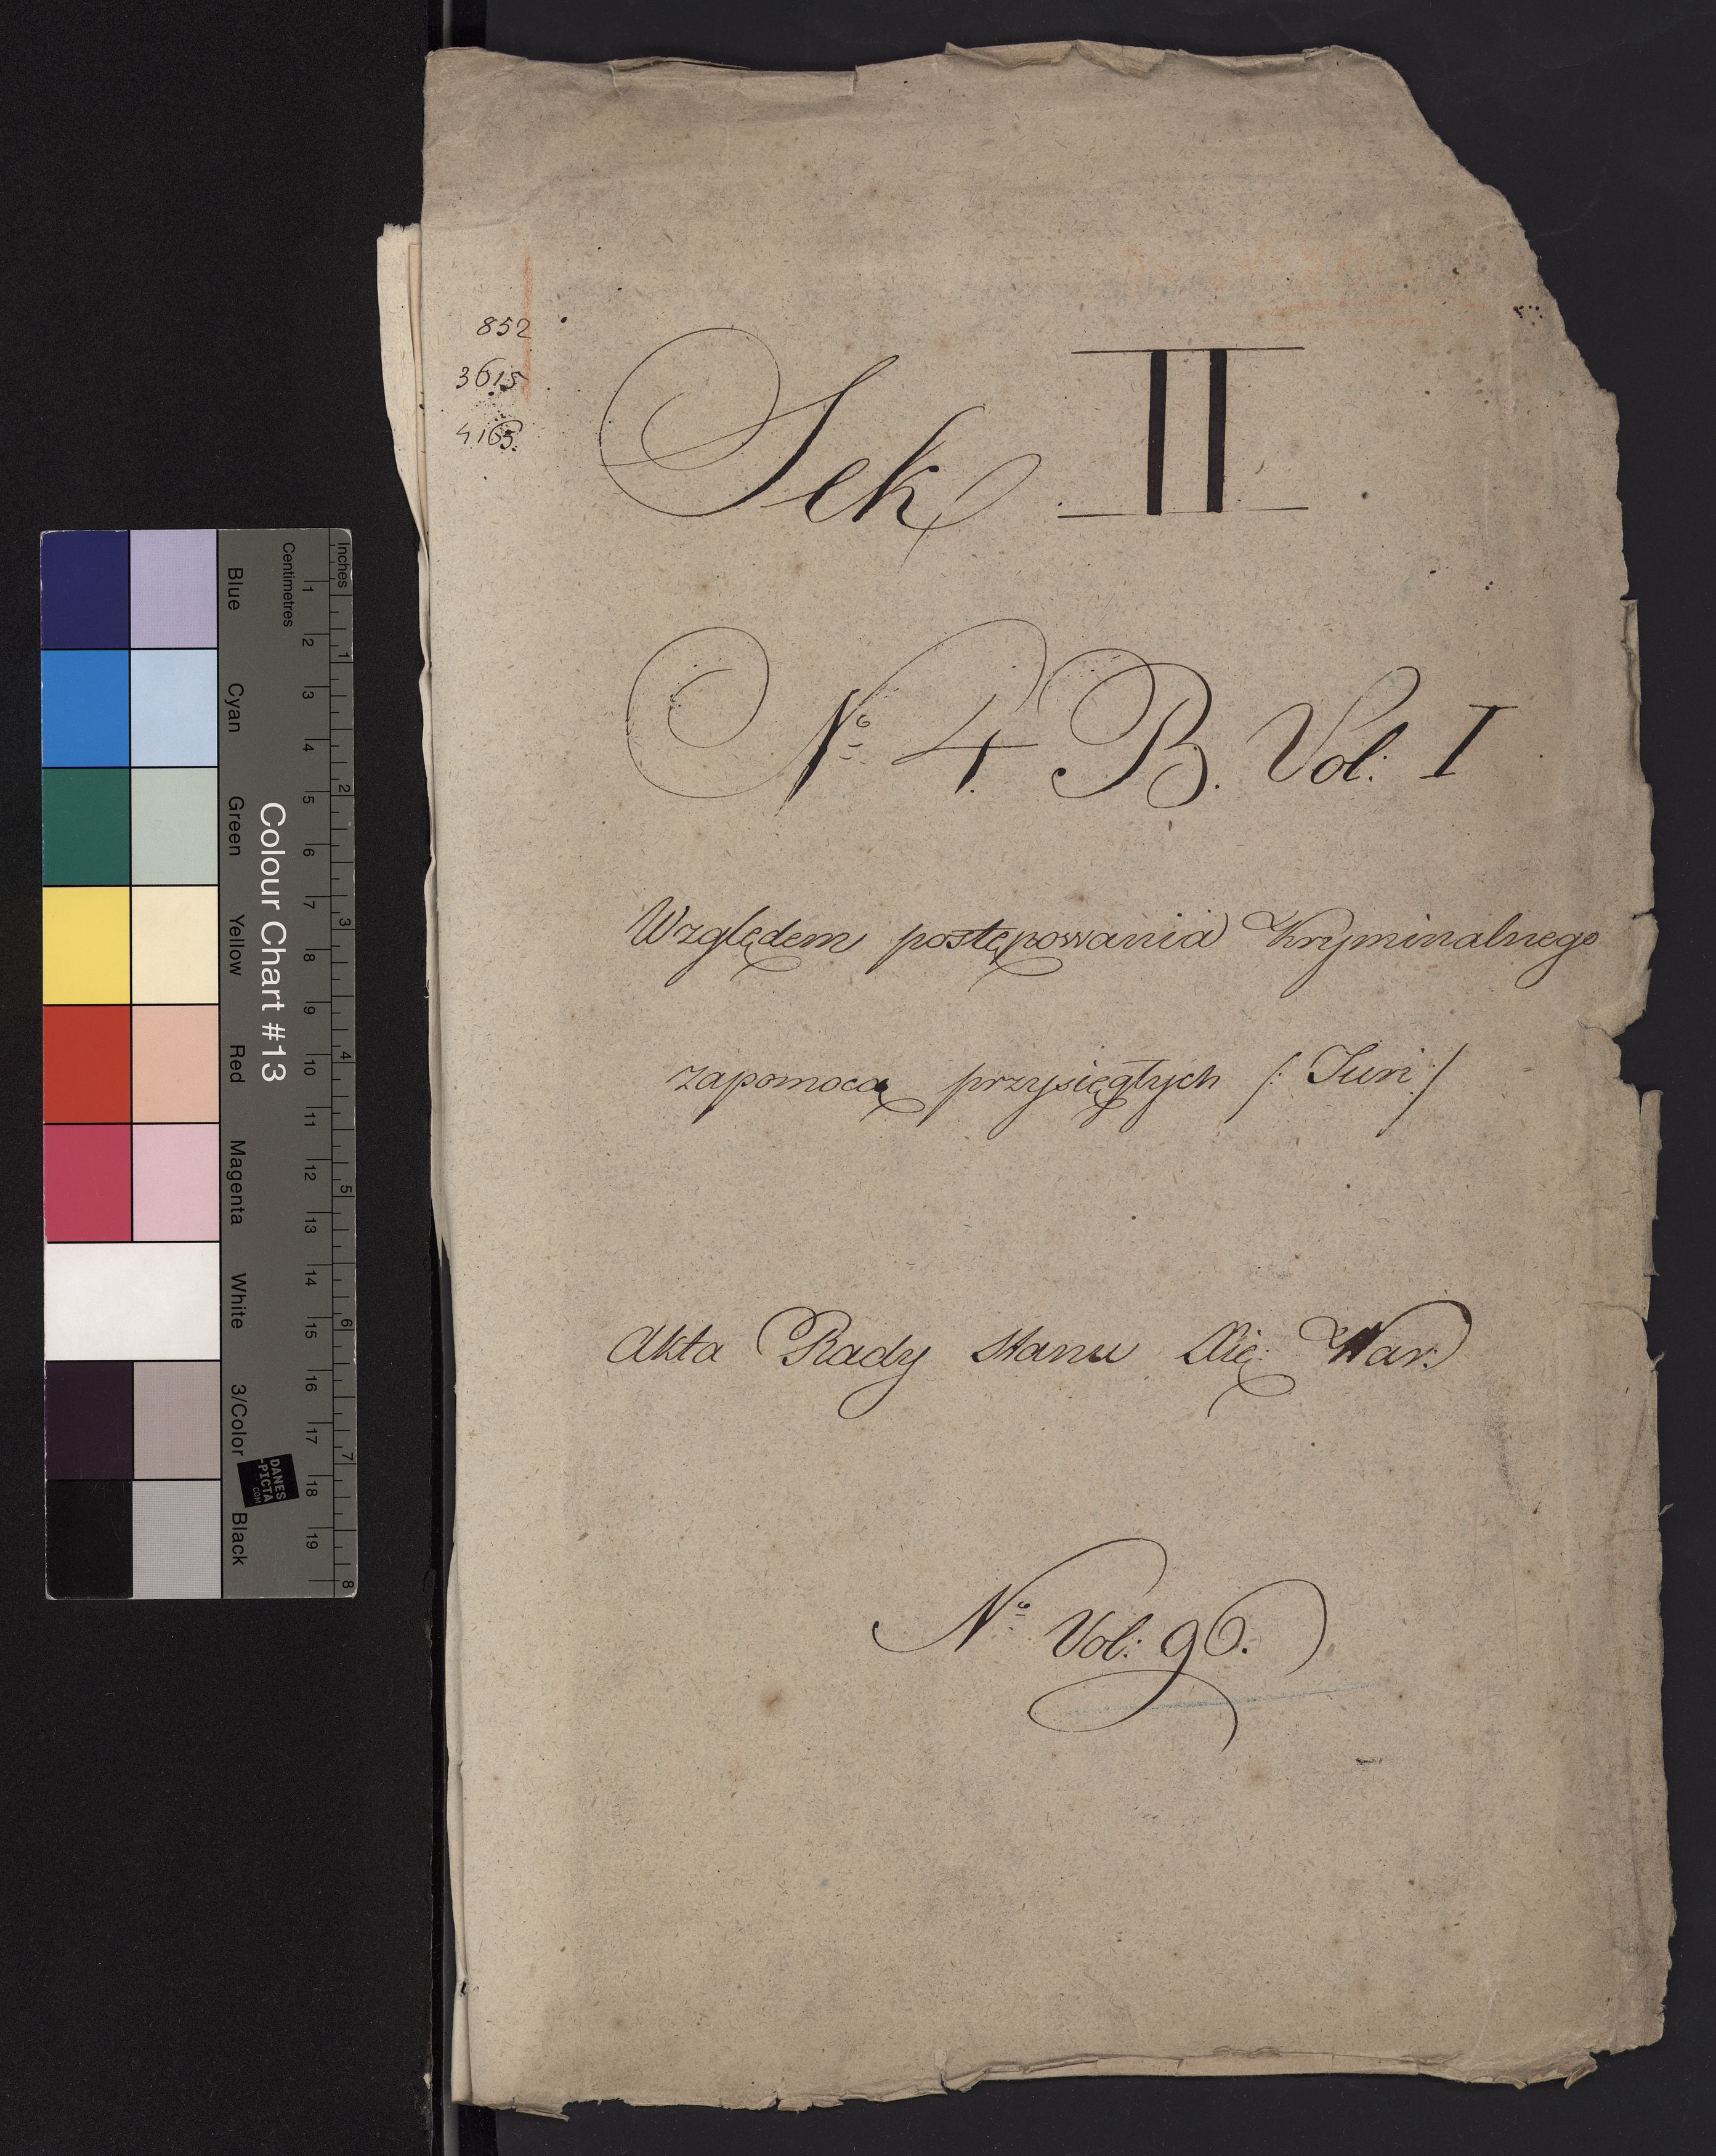 852
3615
4165.
Sek II
No 4. B. Vol: I
Względem postępowania Kryminalnego
zapomocą przysięgłych /: Iuri :/
Akta Rady Stanu Xię: War:
No Vol: 96.
Inches
Centimetres
1 2 3 4 5 6 7 8 9 10 11 12 13 14 15 16 17 18 19
1 2 3 4 5 6 7 8
Colour Chart #13
Blue Cyan Green Yellow Red Magenta White 3/Color Black
DANES
-PICTA
.COM